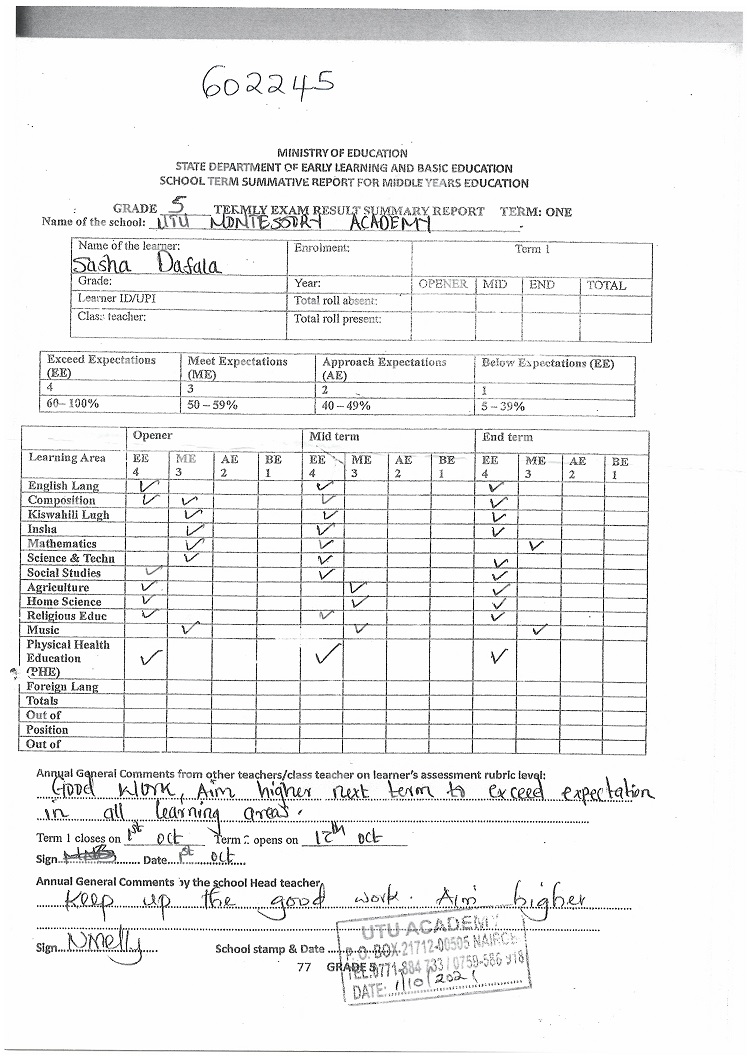 602245
MINISTRY OF EDUCATION
STATE DEPARTMENT OF EARLY LEARNING AND BASIC EDUCATION
SCHOOL TERM SUMMATIVE REPORT FOR MIDDLE YEARS EDUCATION
GRADE 5 TERMLY EXAM RESULT SUMMARY REPORT TERM: ONE
Name of the school: UTU MONTESSORY ACADEMY
Name of the learner: Enrolment: Term 1
Sasha Dafala
Grade: Year: OPENER MID END TOTAL
Learner ID/UPI Total roll absent:
Class teacher: Total roll present:
Exceed Expectations (EE) Meet Expectations (ME) Approach Expectations (AE) Below Expectations (EE)
4 3 2 1
60–100% 50–59% 40–49% 5–39%
Opener Mid term End term
Learning Area EE ME AE BE EE ME AE BE EE ME AE BE
4 3 2 1 4 3 2 1 4 3 2 1
English Lang ✓ ✓ ✓
Composition ✓ ✓ ✓ ✓
Kiswahili Lugh ✓ ✓ ✓
Insha ✓ ✓ ✓
Mathematics ✓ ✓ ✓
Science & Techn ✓ ✓ ✓
Social Studies ✓ ✓ ✓
Agriculture ✓ ✓ ✓
Home Science ✓ ✓ ✓
Religious Educ ✓ ✓ ✓
Music ✓ ✓ ✓
Physical Health
Education ✓ ✓ ✓
(PHE)
Foreign Lang
Totals
Out of
Position
Out of
Annual General Comments from other teachers/class teacher on learner's assessment rubric level:
Good work, Aim higher next term to exceed expectation
in all learning areas.
Term 1 closes on 1st oct Term 2 opens on 12th oct
Sign Date 1st oct
Annual General Comments by the school Head teacher
Keep up the good work. Aim higher
Sign NMelly School stamp & Date
77 GRADE 5
UTU ACADEMY
P. O. BOX 21712-00505
TEL:0771-884 733 / 0759-586 918
DATE: 1/10/2021